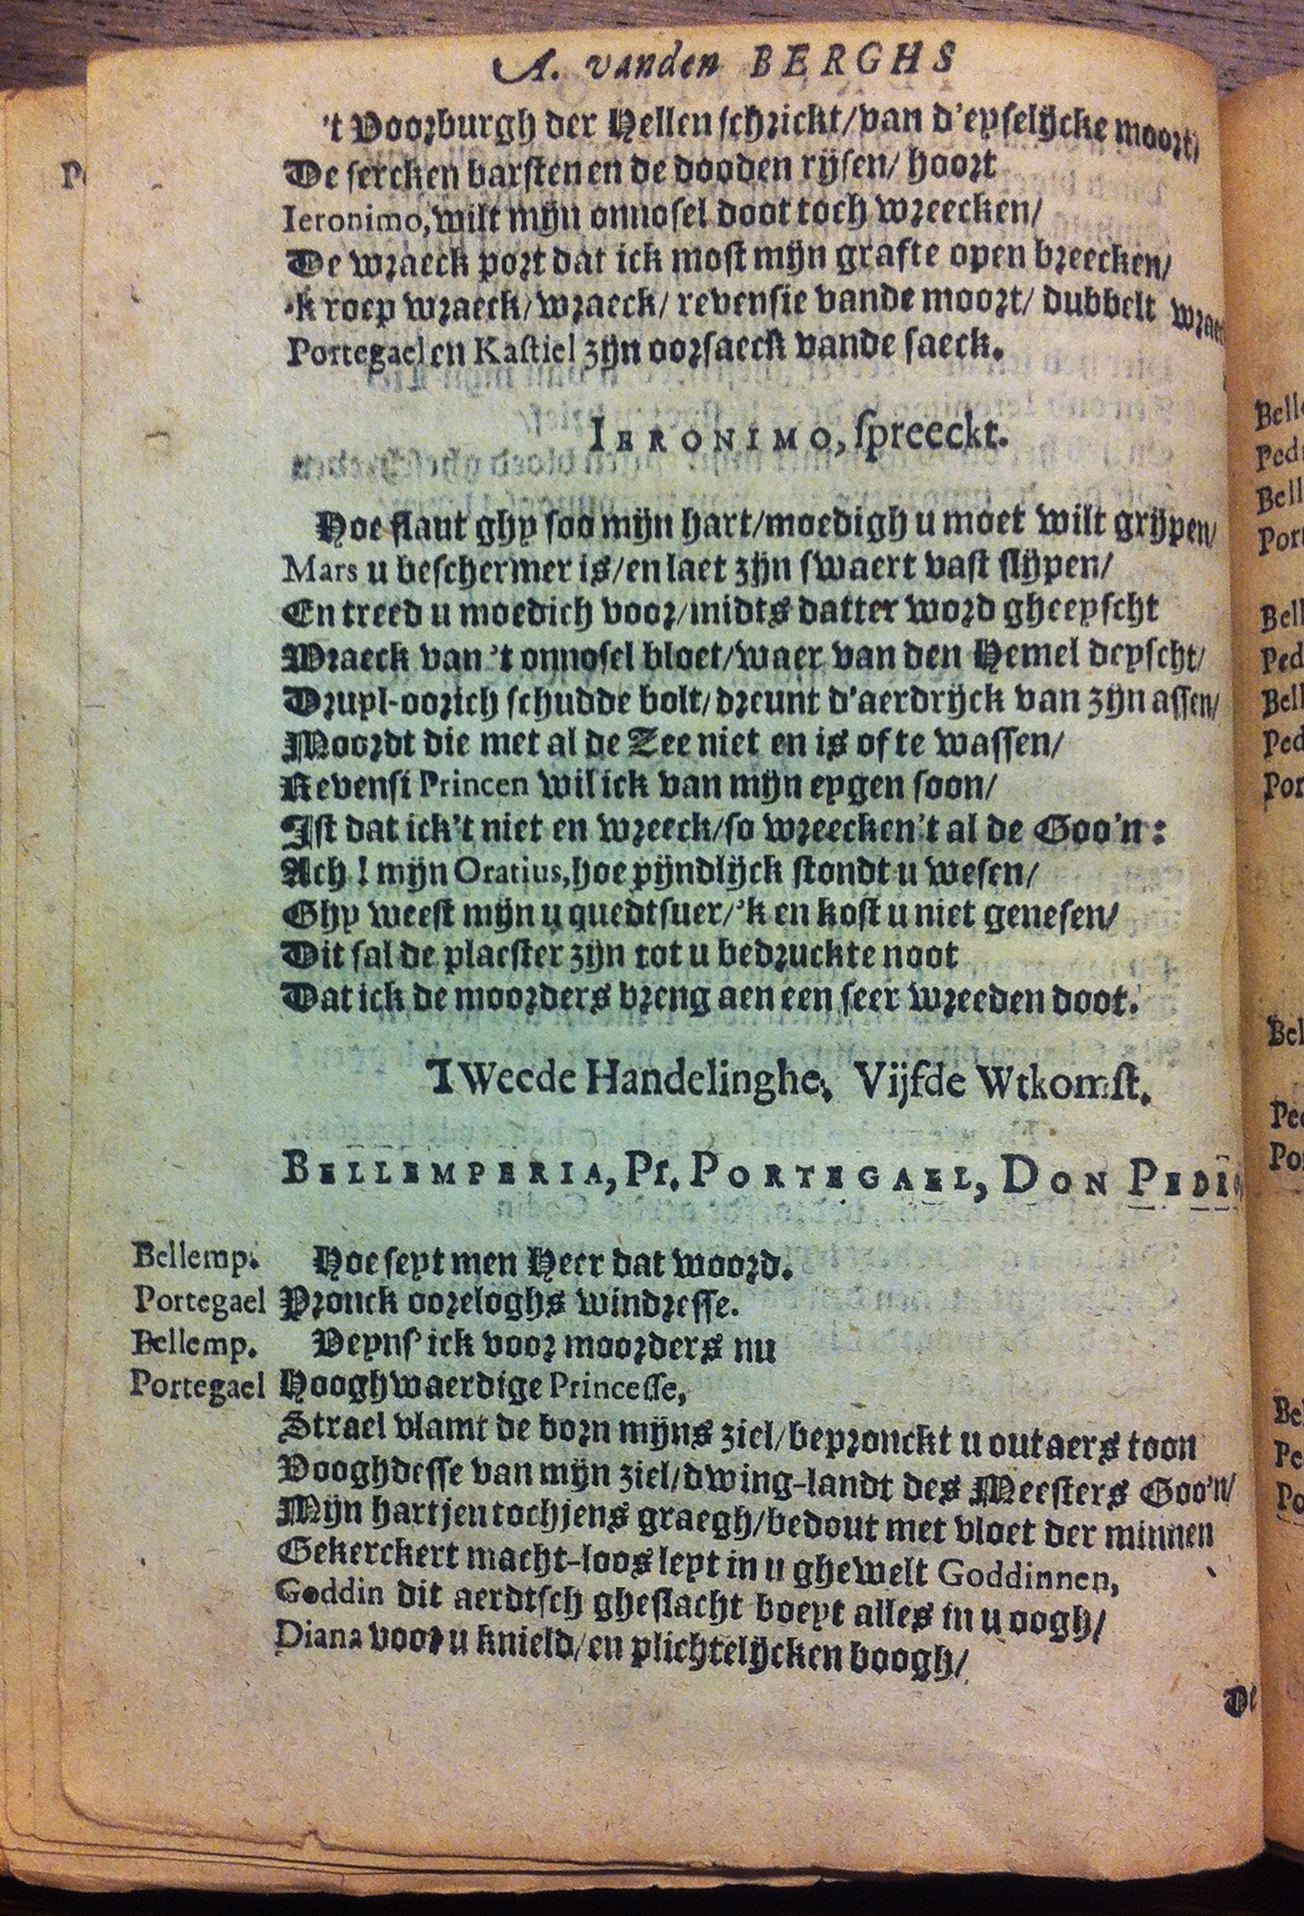 A. vanden BERGHS
't Voorburgh der Hellen schrickt/van d'eyselijcke moort/
De sercken barsten en de dooden rijsen/ hoort
Ieronimo, wilt mijn onnosel doot toch wreecken/
De wraeck port dat ick most mijn grafte open breecken/
'k roep wraeck/wraeck/ revensie vande moort/ dubbelt
Portegael en Kastiel zijn oorsaeck vande saeck.
IERONIMO, spreeckt.
Hoe flaut ghy soo mijn hart/moedigh u moet wilt grijpen/
Mars u beschermer is/en laet zijn swaert vast slijpen/
En treed u moedich voor/midts datter word gheeyscht
Wraeck van 't onnosel bloet/waer van den Hemel deyscht/
Druyl-oorich schudde bolt/dreunt d'aerdrijck van zijn assen/
Moordt die met al de Zee niet en is of te wassen/
Revensi Princen wil ick van mijn eygen soon/
Ist dat ick't niet en wreeck/so wreecken't al de Goo'n:
Ach! mijn Oratius, hoe pijndlijck stondt u wesen/
Ghy weest mijn u quedtsuer/'k en kost u niet genesen/
Dit sal de plaester zijn tot u bedruckte noot
Dat ick de moorders breng aen een seer wreeden doot.
TWeede Handelinghe, Vijfde Wtkomst.
BELLEMPERIA, Pr. PORTEGAEL, DON PEDRO,
Bellemp. Hoe seyt men Heer dat woord.
Portegael Pronck oorloghs windresse.
Bellemp. Veyns' ick voor moorders nu
Portegael Hooghwaerdige Princesse,
Strael vlamt de born mijns ziel/bepronckt u outaers toon
Vooghdesse van mijn ziel/dwing-landt des Meesters Goo'n/
Mijn hartjen tochjens graegh/bedout met vloet der minnen
Gekerckert macht-loos leyt in u ghewelt Goddinnen,
Goddin dit aerdtsch gheslacht boeyt alles in u oogh/
Diana voor u knield/en plichtelijcken boogh/
De